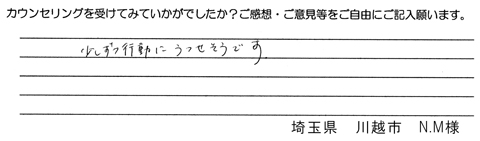 カウンセリングを受けてみていかがでしたか？ご感想・ご意見等をご自由にご記入願います。
少しずつ行動にうつせそうです
埼玉県　川越市　N.M様